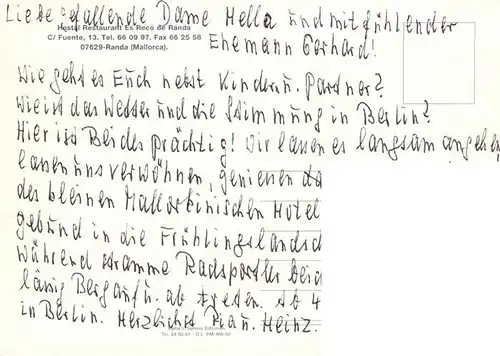 Liebe gefallende Dame Hella und mitfühlender
Ehemann Gerhard!
Hostal Restaurant Es Recó de Randa
C/ Fuente, 13. Tel. 66 09 97. Fax 66 25 58
07629-Randa (Mallorca).
Wie geht es Euch nebst Kinder u. Partner?
Wie ist das Wetter und die Stimmung in Berlin?
Hier ist Beides prächtig! Wir lassen es langsam angehen
lassen uns verwöhnen, geniessen da
des kleinen Mallorkinischen Hotel
gebund in die Frühlingslandsch
während stramme Radsportler
Bergauf u. ab Ab 4
in Berlin. Herzlichst Pia u. Heinz.